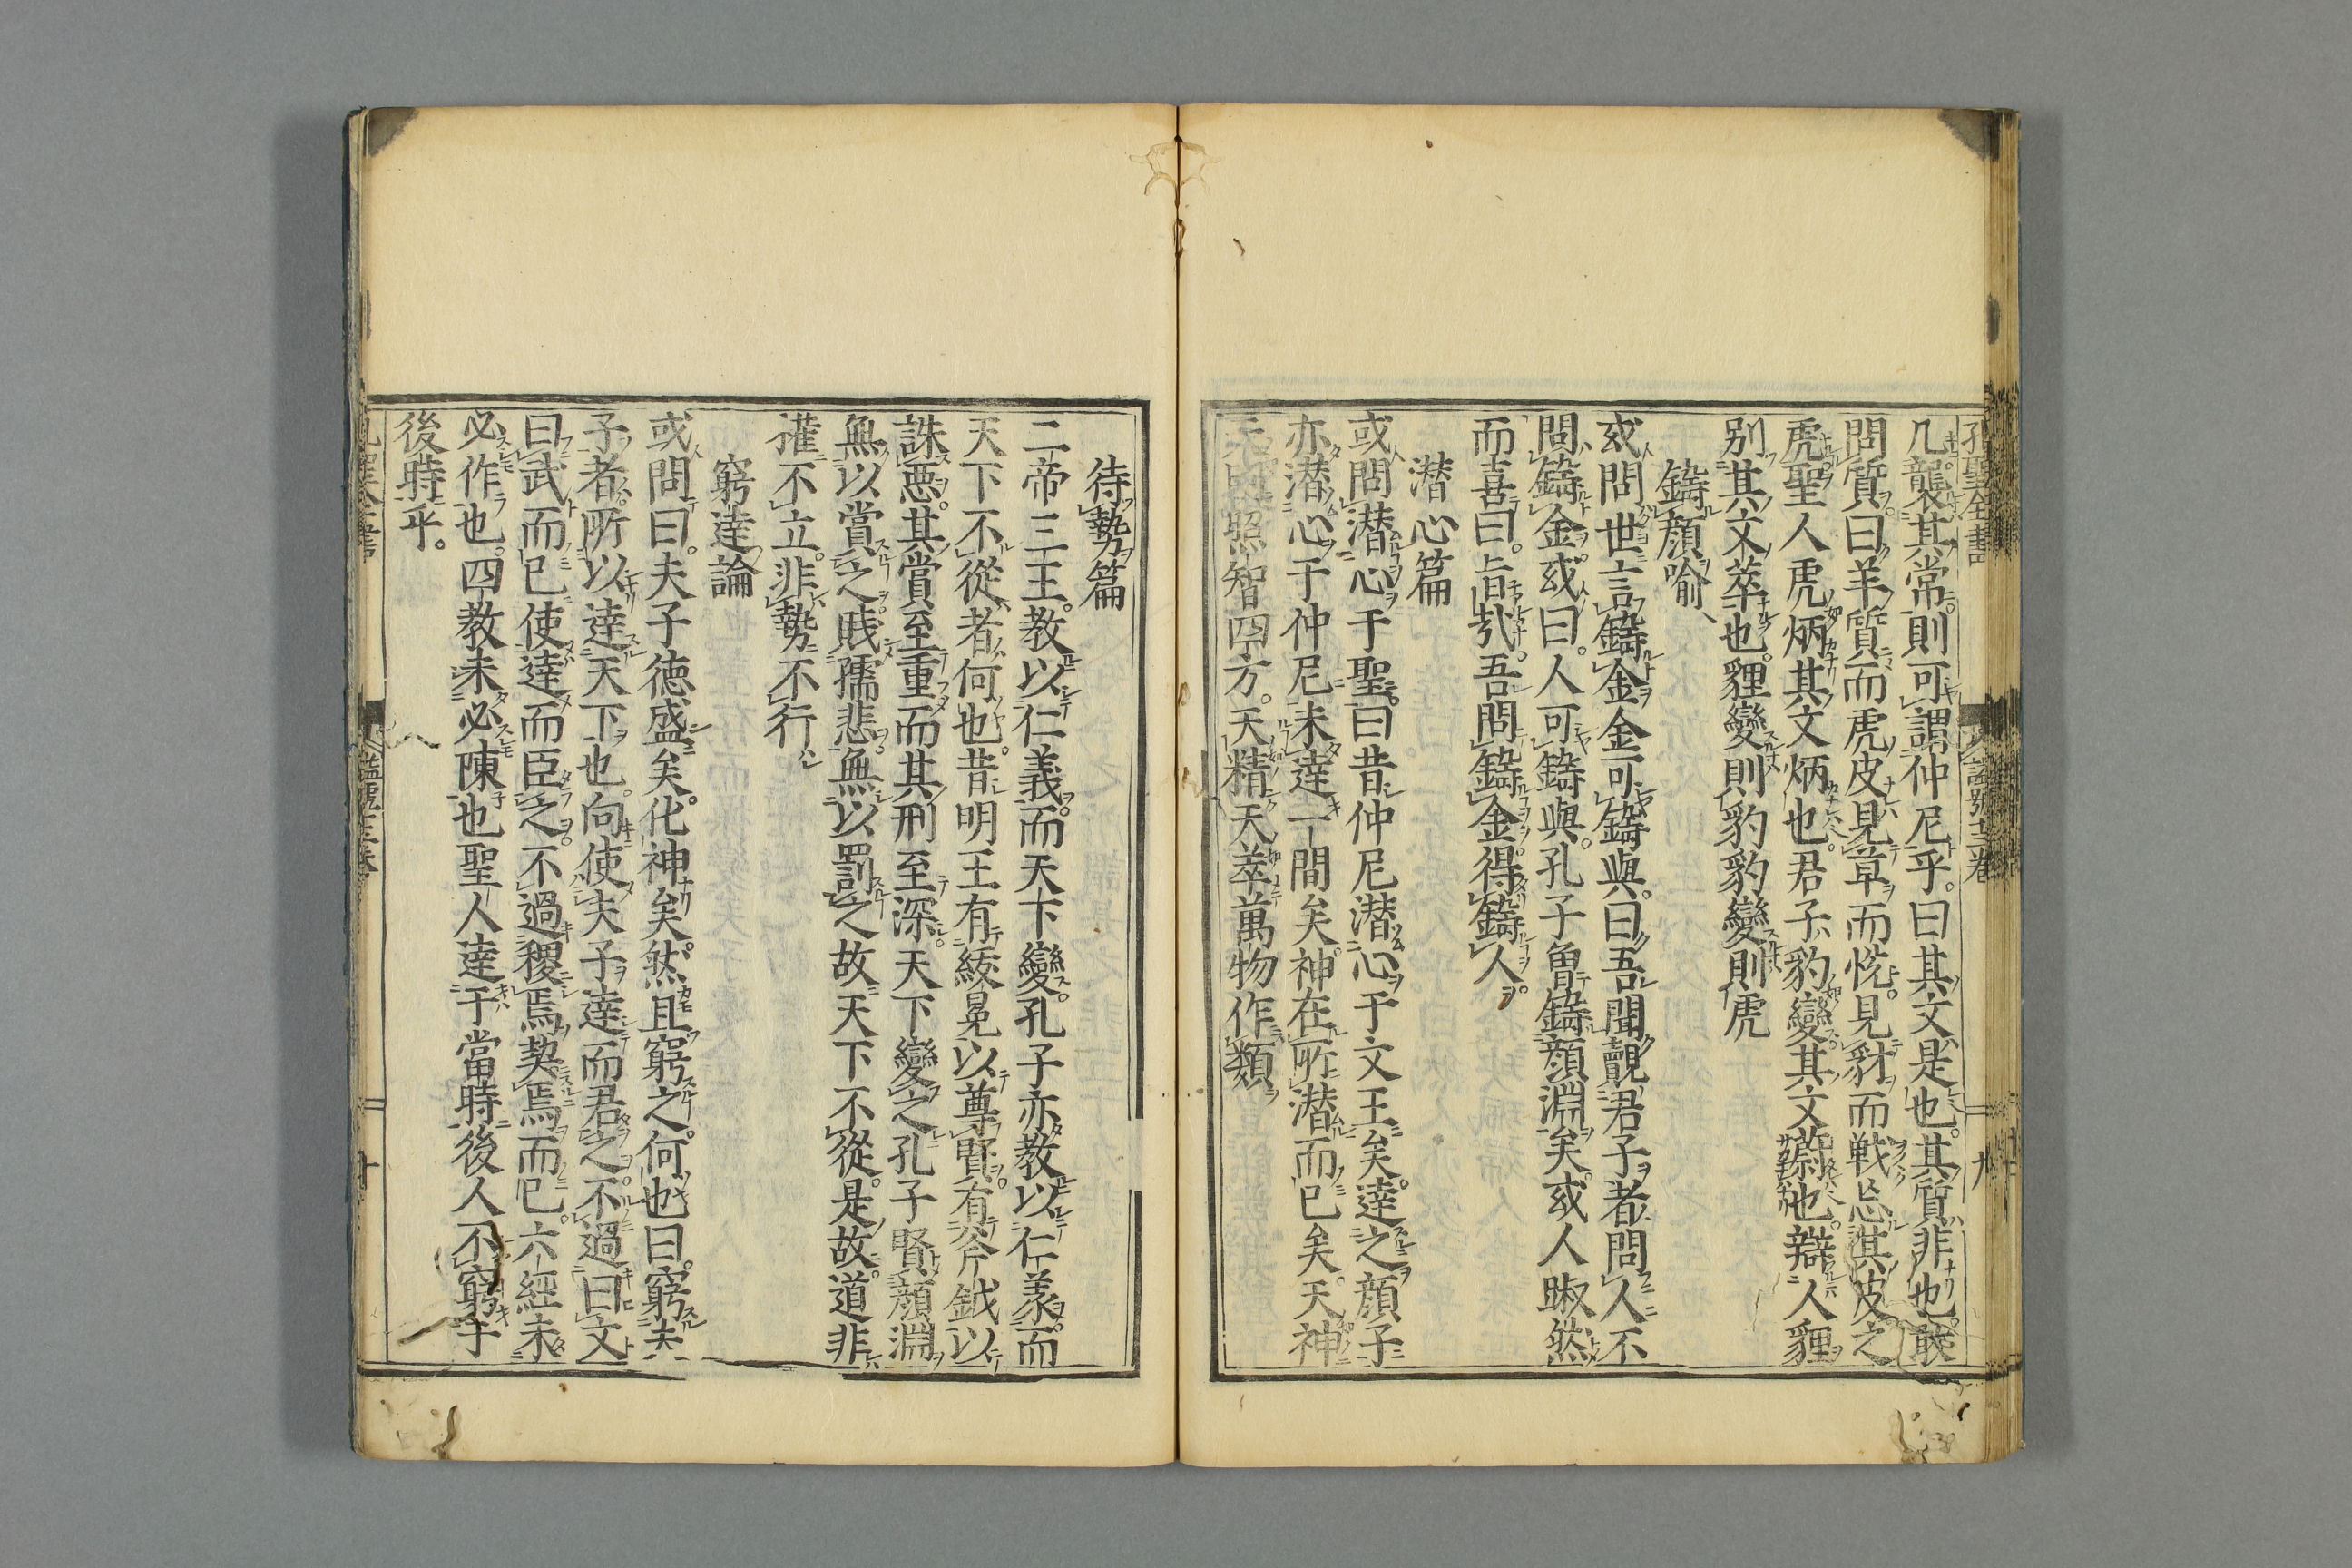 孔聖全書
几襲其常則可謂仲尼乎。曰其文是也。其質非也。敢
問質。曰羊質而虎皮見草而恱。見豺而戦忘其皮之
虎聖人虎炳其文炳也。君子豹變其文蔚也。辯人貍
別其文萃也。貍變則豹豹變則虎
鑄顔喻
或問世言鑄金金可鑄與。曰吾聞覿君子者問人不
問鑄金。或曰。人可鑄與。孔子魯鑄顔淵矣。或人踧然
而喜曰。旨哉。吾問鑄金。得鑄人。
潜心篇
或問潜心于聖。曰昔仲尼潜心于文王矣。達之顔子
亦潜心于仲尼未達一間矣神在所潜而已矣。天神
天明照智四方。天精天萃萬物作類
待勢篇
二帝三王。教以仁義。而天下變。孔子亦教以仁義。而
天下不從者何也。昔明王有綾冕以尊賢。有斧鉞以
誅惡。其賞至重而其刑至深。天下變之孔子賢顔淵
無以賞之賎孺悲。無以罰之故天下不從。是故。道非
權不立。非勢不行
窮達論
或問曰。夫子徳盛矣。化神矣。然且窮之。何也曰。窮夫
子者所以達天下也。向使夫子達而君之。不過曰文
曰武而已使達而臣之。不過稷焉契焉而已。六經未
必作也。四教未必陳也聖人達于當時後人不窮于
後時乎。